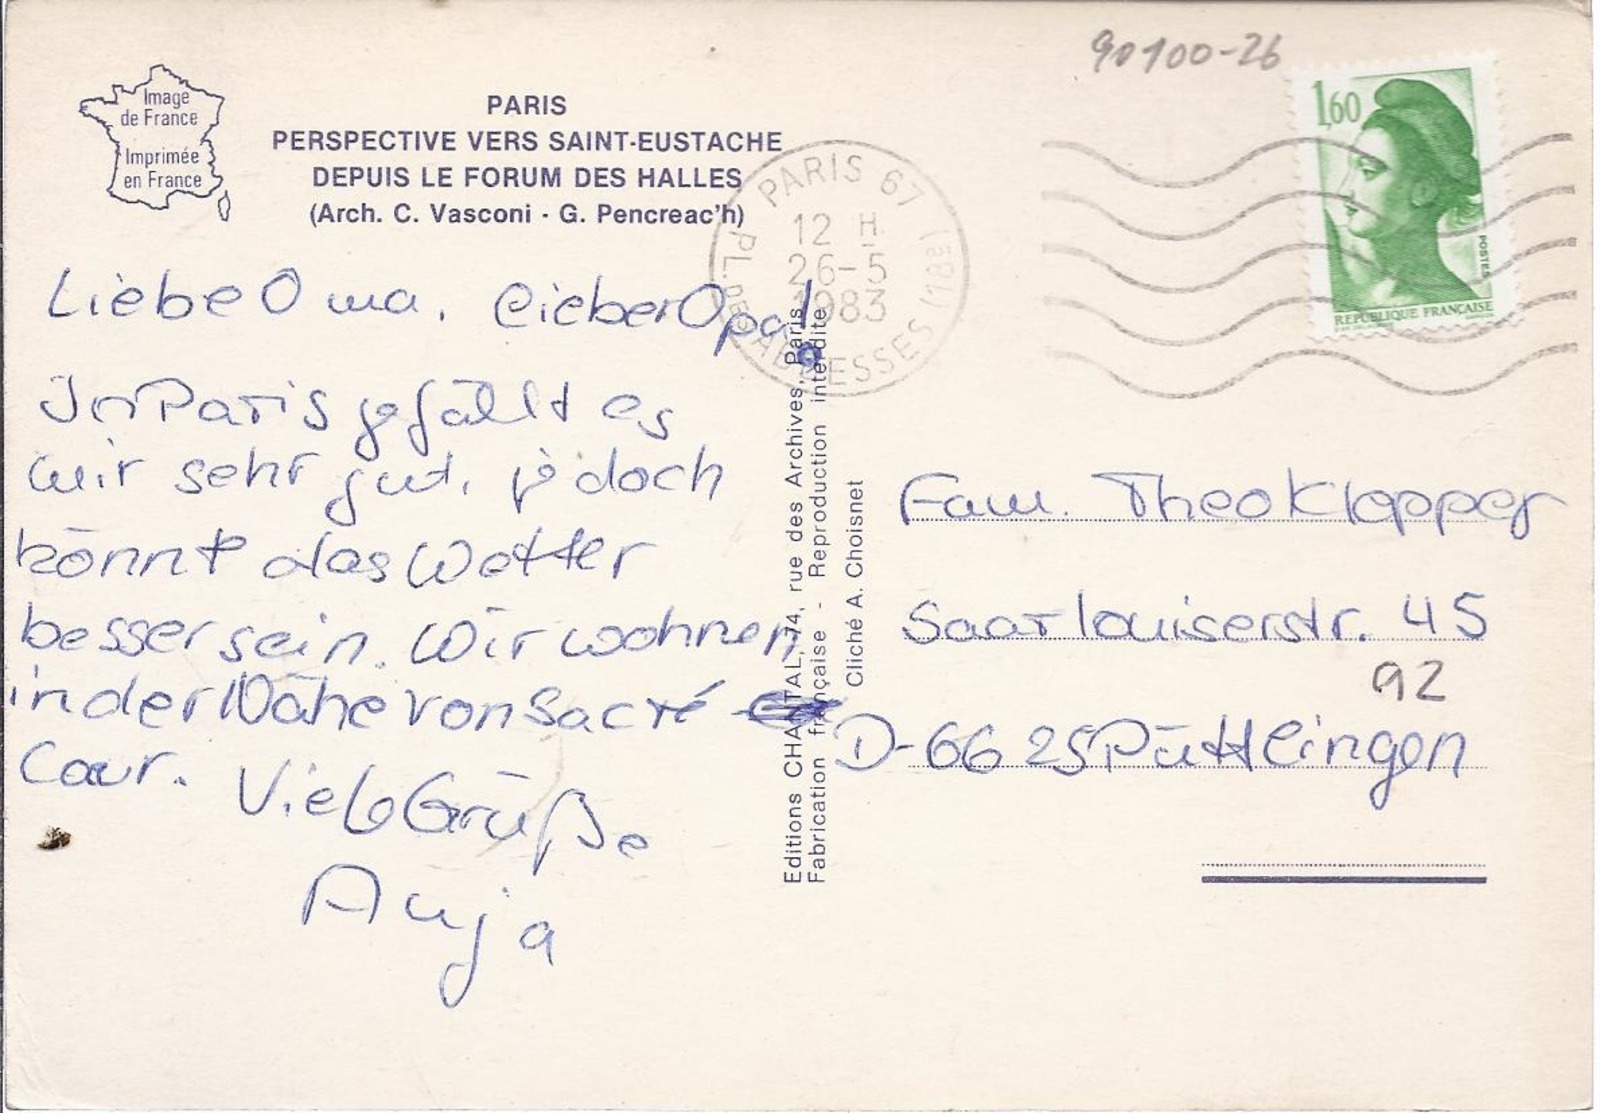 90100-26
Image
de France
Imprimée
en France
PARIS
PERSPECTIVE VERS SAINT-EUSTACHE
DEPUIS LE FORUM DES HALLES
(Arch. C. Vasconi - G. Pencreac'h)
PARIS 67
12 H
26-5
1983
PL. DES ABBESSES (18e)
1,60
POSTES
REPUBLIQUE FRANÇAISE
Liebe Oma, lieber Opa!
In Paris gefällt es
mir sehr gut, jedoch
könnte das Wetter
besser sein. Wir wohnen
in der Nähe von Sacré
Cœur. Viele Grüße
Anja
Editions CHANTAL, 74, rue des Archives, Paris
Fabrication française - Reproduction interdite
Cliché A. Choisnet
Fam. Theo Klepper
Saarlouiserstr. 45
92
D-6625 Püttlingen